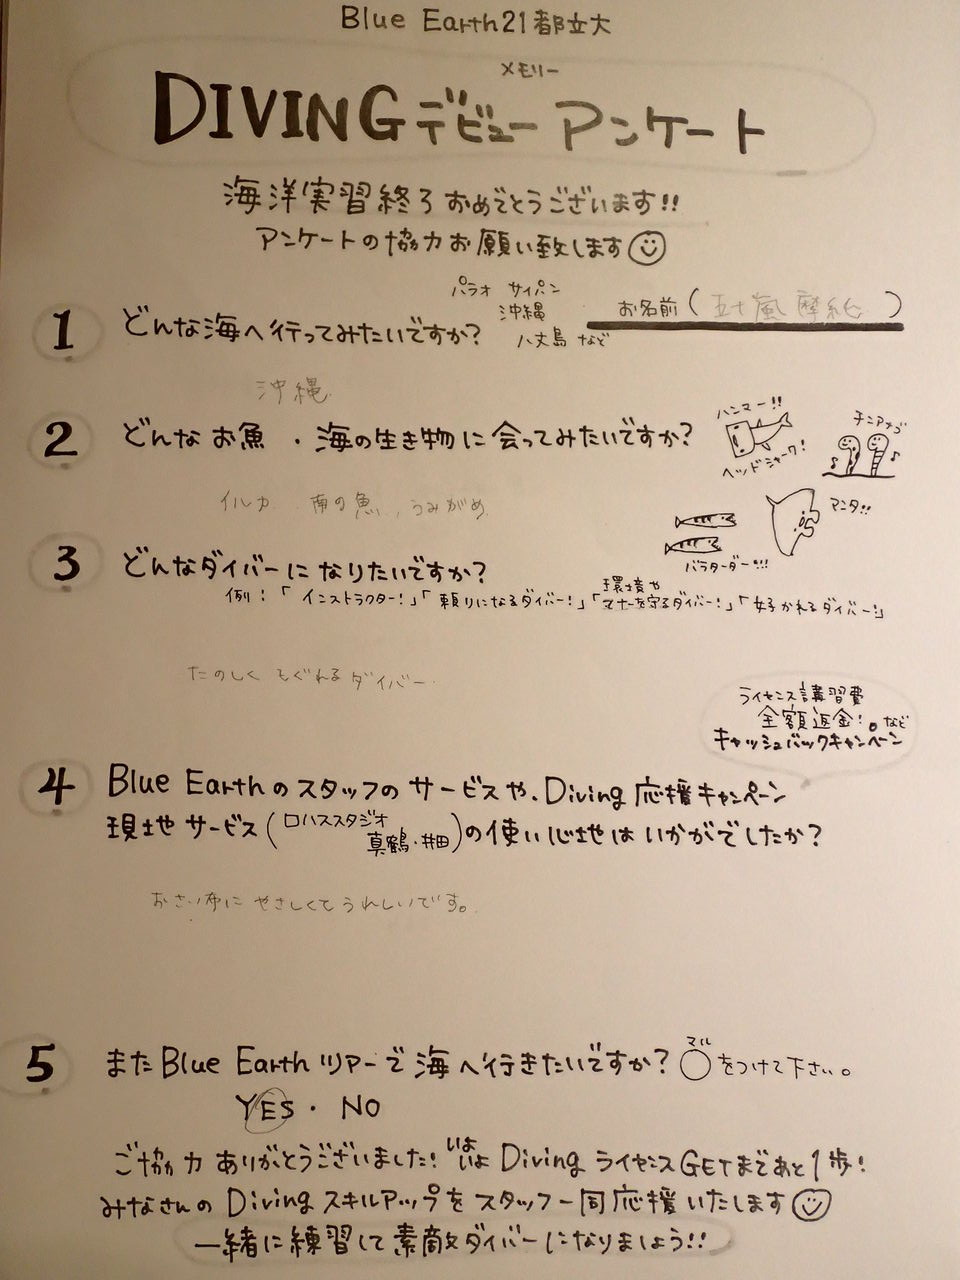 Blue Earth21都立大
メモリー
DIVINGデビューアンケート
海洋実習終了おめでとうございます!!
アンケートの協力お願い致します
1 どんな海へ行ってみたいですか?
パラオ サイパン
沖縄
八丈島 など
お名前(五十嵐 )
沖縄
2 どんなお魚・海の生き物に会ってみたいですか?
ハンマー!!
ヘッドシャーク!
チンアナゴ
マンタ!!
バラクーダー!!!
イルカ 南の魚、うみがめ
3 どんなダイバーになりたいですか?
例:「インストラクター!」「頼りになるダイバー!」「環境やマナーを守るダイバー!」「好かれるダイバー!」
たのしくもぐれるダイバー
ライセンス講習費
全額返金!。など
キャッシュバックキャンペーン
4 Blue Earthのスタッフのサービスや、Diving応援キャンペーン
現地サービス(ロハススタジオ 真鶴・井田)の使い心地はいかがでしたか?
やさしくてうれしいです。
5 またBlue Earthツアーで海へ行きたいですか?
マル
○をつけて下さい。
YES・NO
ご協力ありがとうございました!いよいよDivingライセンスGETまであと1歩!
みなさんのDivingスキルアップをスタッフ一同応援いたします
一緒に練習して素敵なダイバーになりましょう!!